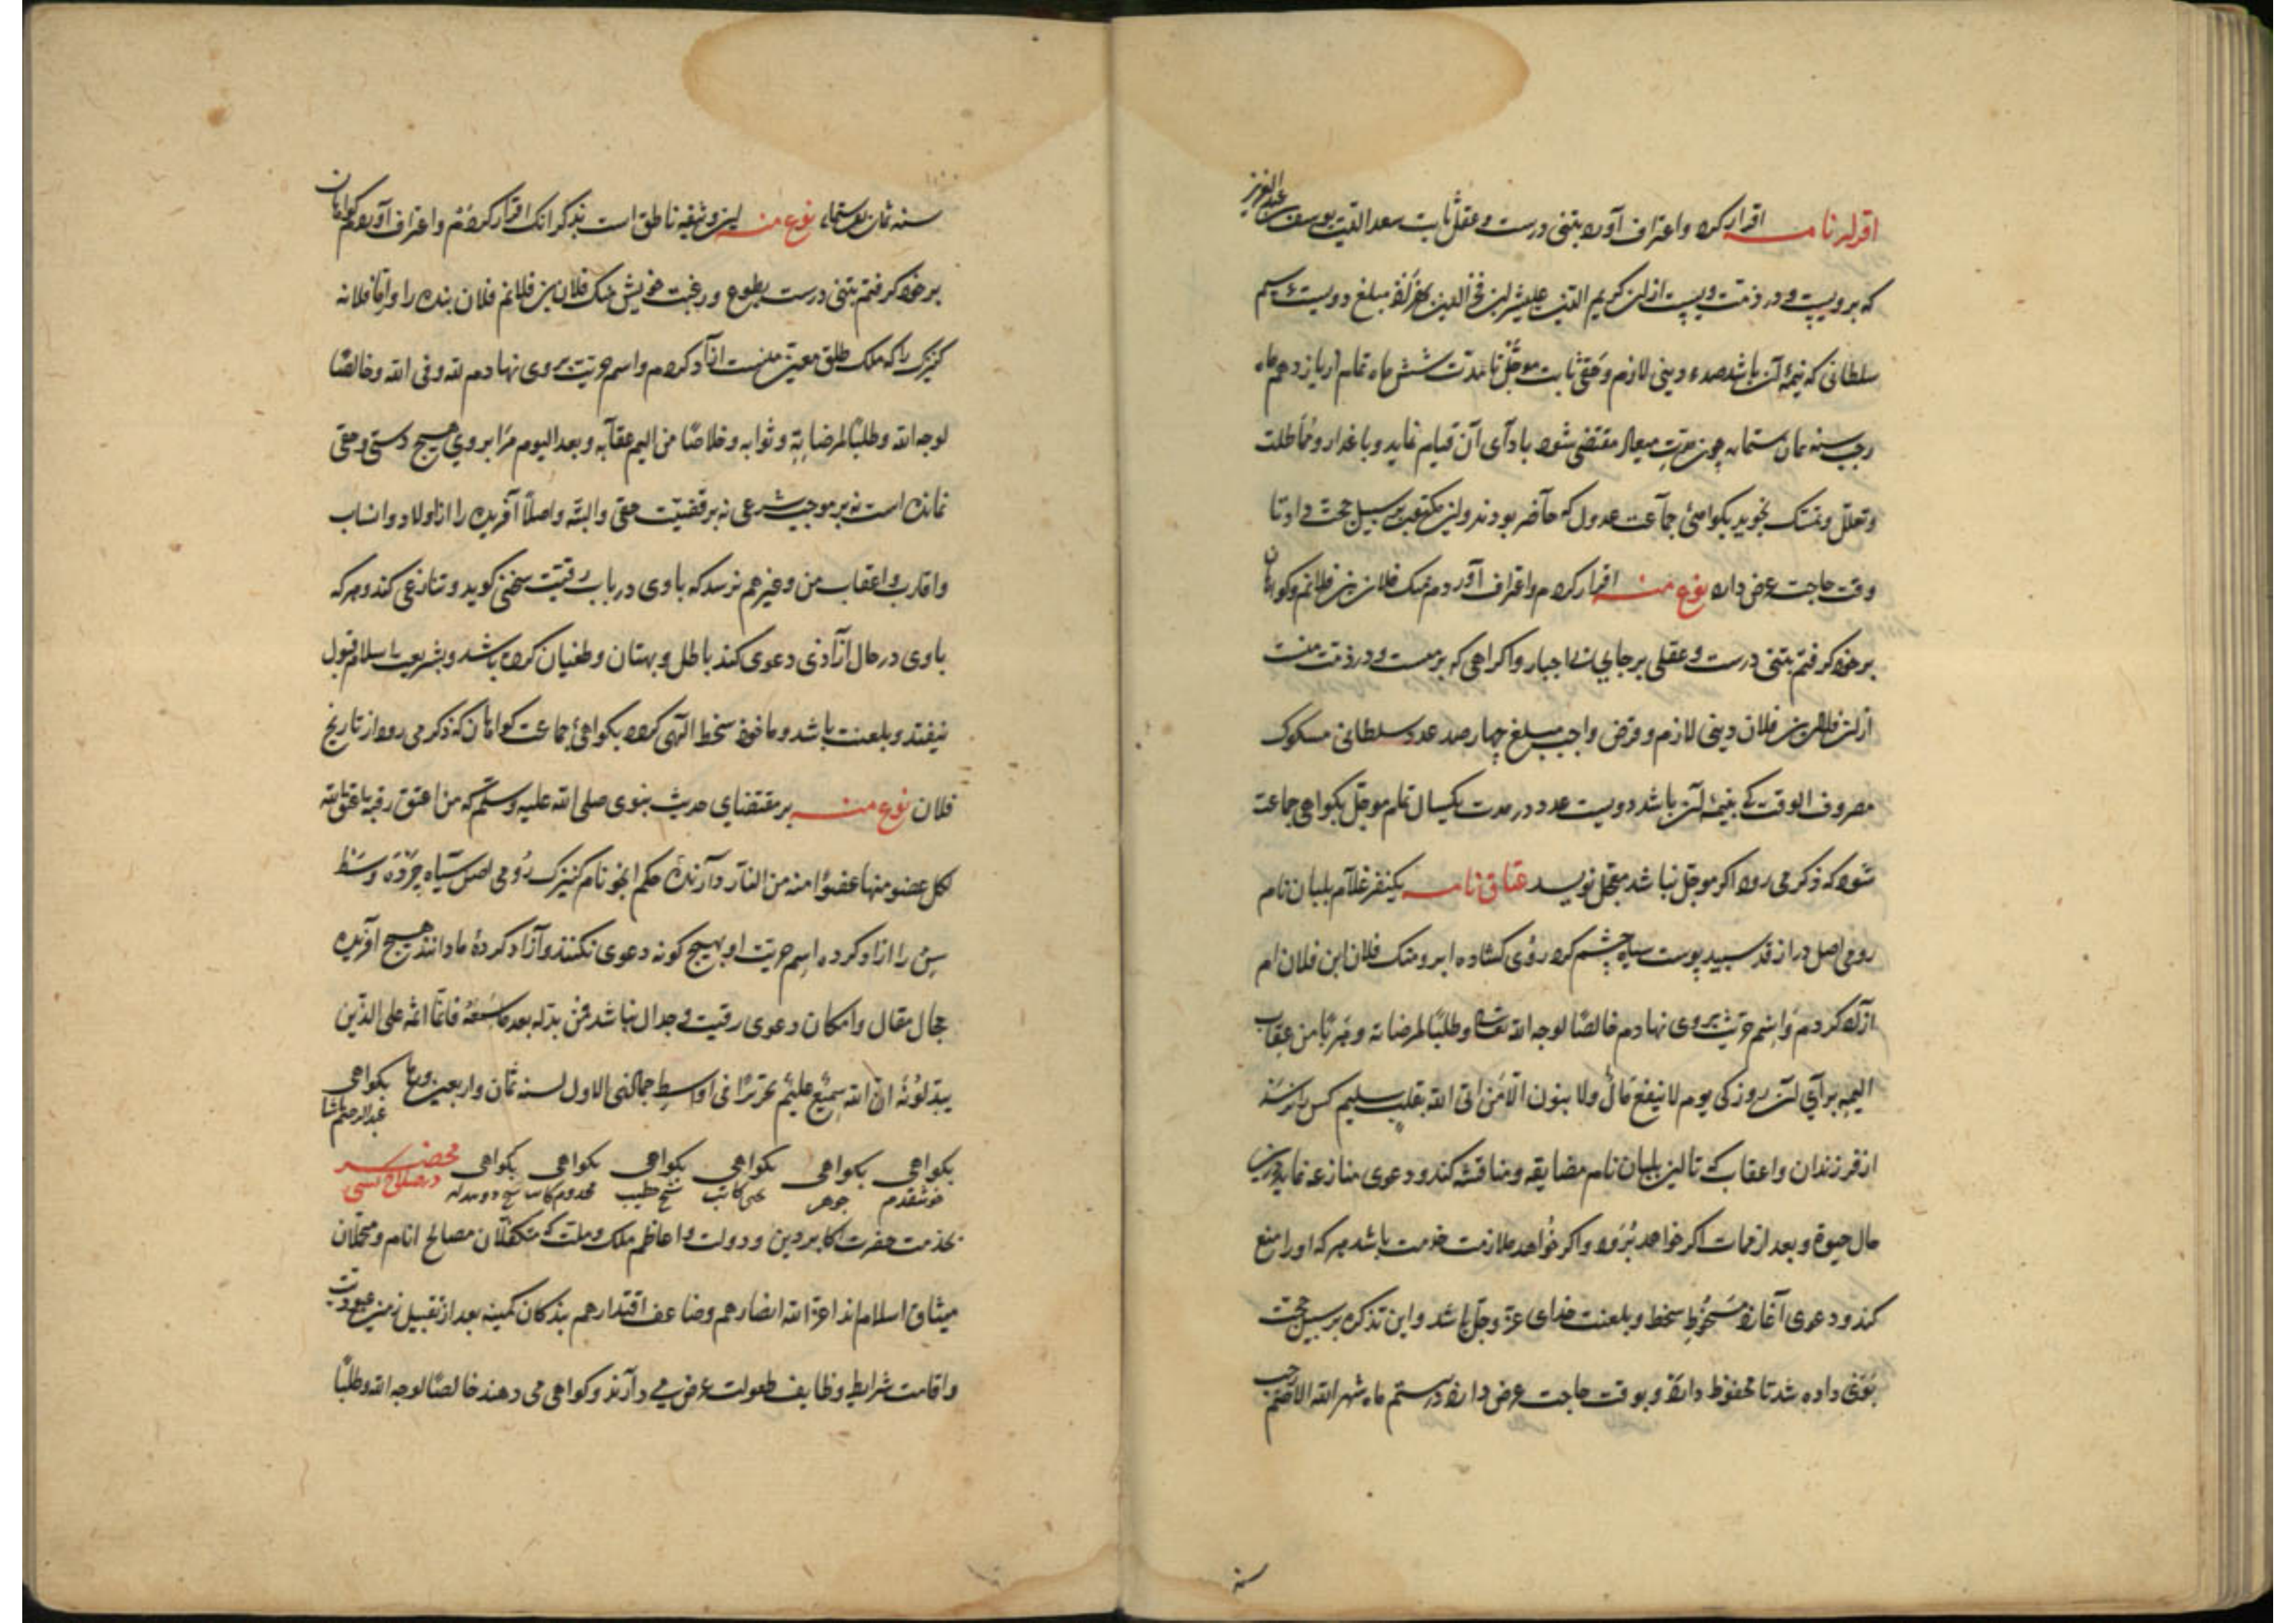 اقرار نامه اقرار کرد و اعتراف آورد بتنی درست و عقلی ثابت سعد الدین یوسف عبد العزیز
که برویست و در ذمت ویست از ان کریم الدین علیشیر ابن فخر الدین مبلغ دویست عدد
سلطانی که نیمهٔ آن باشد صد عدد دینی لازم و حقی ثابت موجل تا مدت شش ماه تمام از یازدهم ماه
رجب سنه ثمان ستمایه چون مدت میعاد مقتضی شود بادآی آن قیام نماید و باعذار و مماطلت
و تعلل و تمسک نجوید بکواهی جماعت عدول که حاضر بودند و این مکتوب بر سبیل حجت داد تا
وقت حاجت عرض دارد نوع منه اقرار کردم و اعتراف آوردم منک فلان بن فلانم و کواهان
بر خود کرفتم بتنی درست و عقلی برجای بی اجبار و اکراهی که بر منست و در ذمت منست
از ان فلان بن فلان دینی لازم و قرض واجب مبلغ چهارصد عدد سلطانی مسکوک
مصروف الوقت که نیمهٔ آن باشد دویست عدد در مدت یکسال تمام موجل بکواهی جماعت
شود که ذکر می رود اکر موجل نباشد معجل نویسد عتاق نامه یکنفر غلام بلبان نام
رومی اصل دراز قد سپید پوست سیاه چشم کرد روی کشاده ابرو منک فلان ابن فلان ام
آزاد کردم و اسم حریت بروی نهادم خالصًا لوجه الله تعالی و طلبًا لمرضاته و هربًا من عقاب
الیمه برآی آن روز کی یوم لا ینفع مال ولا بنون الا من اتی الله بقلب سلیم کس را نرسد
از فرزندان و اعقاب که تا این بلبان نام مضایقه و مناقشه کند و دعوی منازعه نماید در
حال حیوة و بعد از ممات اکر خواهد برود و اکر خواهد ملازمت خدمت باشد هر که او را منع
کند و دعوی آغازد مسخوط سخط و بلعنت خدای عز و جل باشد و این تذکره بر سبیل حجت
بوی داده شد تا محفوظ دارد و بوقت حاجت عرض دارد در بیستم ماه شهر الله الاصم رجب
سنه
سنه ثمان و ستمایه نوع منه این وثیقه ناطق است بذکر انک اقرار کردم و اعتراف آوردم و کواهان
بر خود کرفتم بتنی درست بطوع و رغبت خویش منک فلان بن فلانم فلان بنده را و یا فلانه
کنیزک را که ملک طلق معین منست آزاد کردم و اسم حریت بروی نهادم لله و فی الله و خالصًا
لوجه الله و طلبًا لمرضاته و ثوابه و خلاصًا من الیم عقابه و بعد الیوم مرا بروی هیچ دستی و حقی
نمانده است نه بر موجب شرعی نه بر قضیت حقی و البته و اصلًا آفریده را از اولاد و انساب
و اقارب و اعقاب من و غیرهم نرسد که با وی در باب رقیت سخنی کوید و تنازعی کند و هر که
با وی در حال آزادی دعوی کند باطل و بهتان و طغیان کرده باشد و بشریعت اسلام قبول
نیفتد و بلعنت باشد و ماخوذ سخط الهی کردد بکواهی جماعت کواهان که ذکر می رود از تاریخ
فلان نوع منه بر مقتضای حدیث نبوی صلی الله علیه و سلم که من اعتق رقبة اعتق الله
لکل عضو منها عضوًا منه من النار دارنده حکم نام کنیزک رومی اصل سیاه چرده وسط
سن را ازاد کرده اسم حریت او بهیچ کونه دعوی نکنند و آزاد کردهٔ ما دانند هیچ آفریده
مجال مقال و امکان دعوی رقیت و جدال نباشد فمن بدله بعد ما سمعه فانما اثمه علی الذین
یبدلونه ان الله سمیع علیم تحریرًا فی اواسط جمادی الاول لسنه ثمان و اربعین بکواهی
بکواهی بکواهی بکواهی بکواهی بکواهی بکواهی محضر
خوشقدم جوهر کاتب خطیب در صلاح کسی
بخدمت حضرت اکابر دین و دولت و اعاظم ملک و ملت که متکفلان مصالح انام و متحملان
میثاق اسلام اند اعز الله انصارهم و ضاعف اقتدارهم بندکان کمینه بعد از تقبیل زمین عبودیت
و اقامت شرایط وظایف عرض می دارند و کواهی می دهند خالصًا لوجه الله و طلبًا